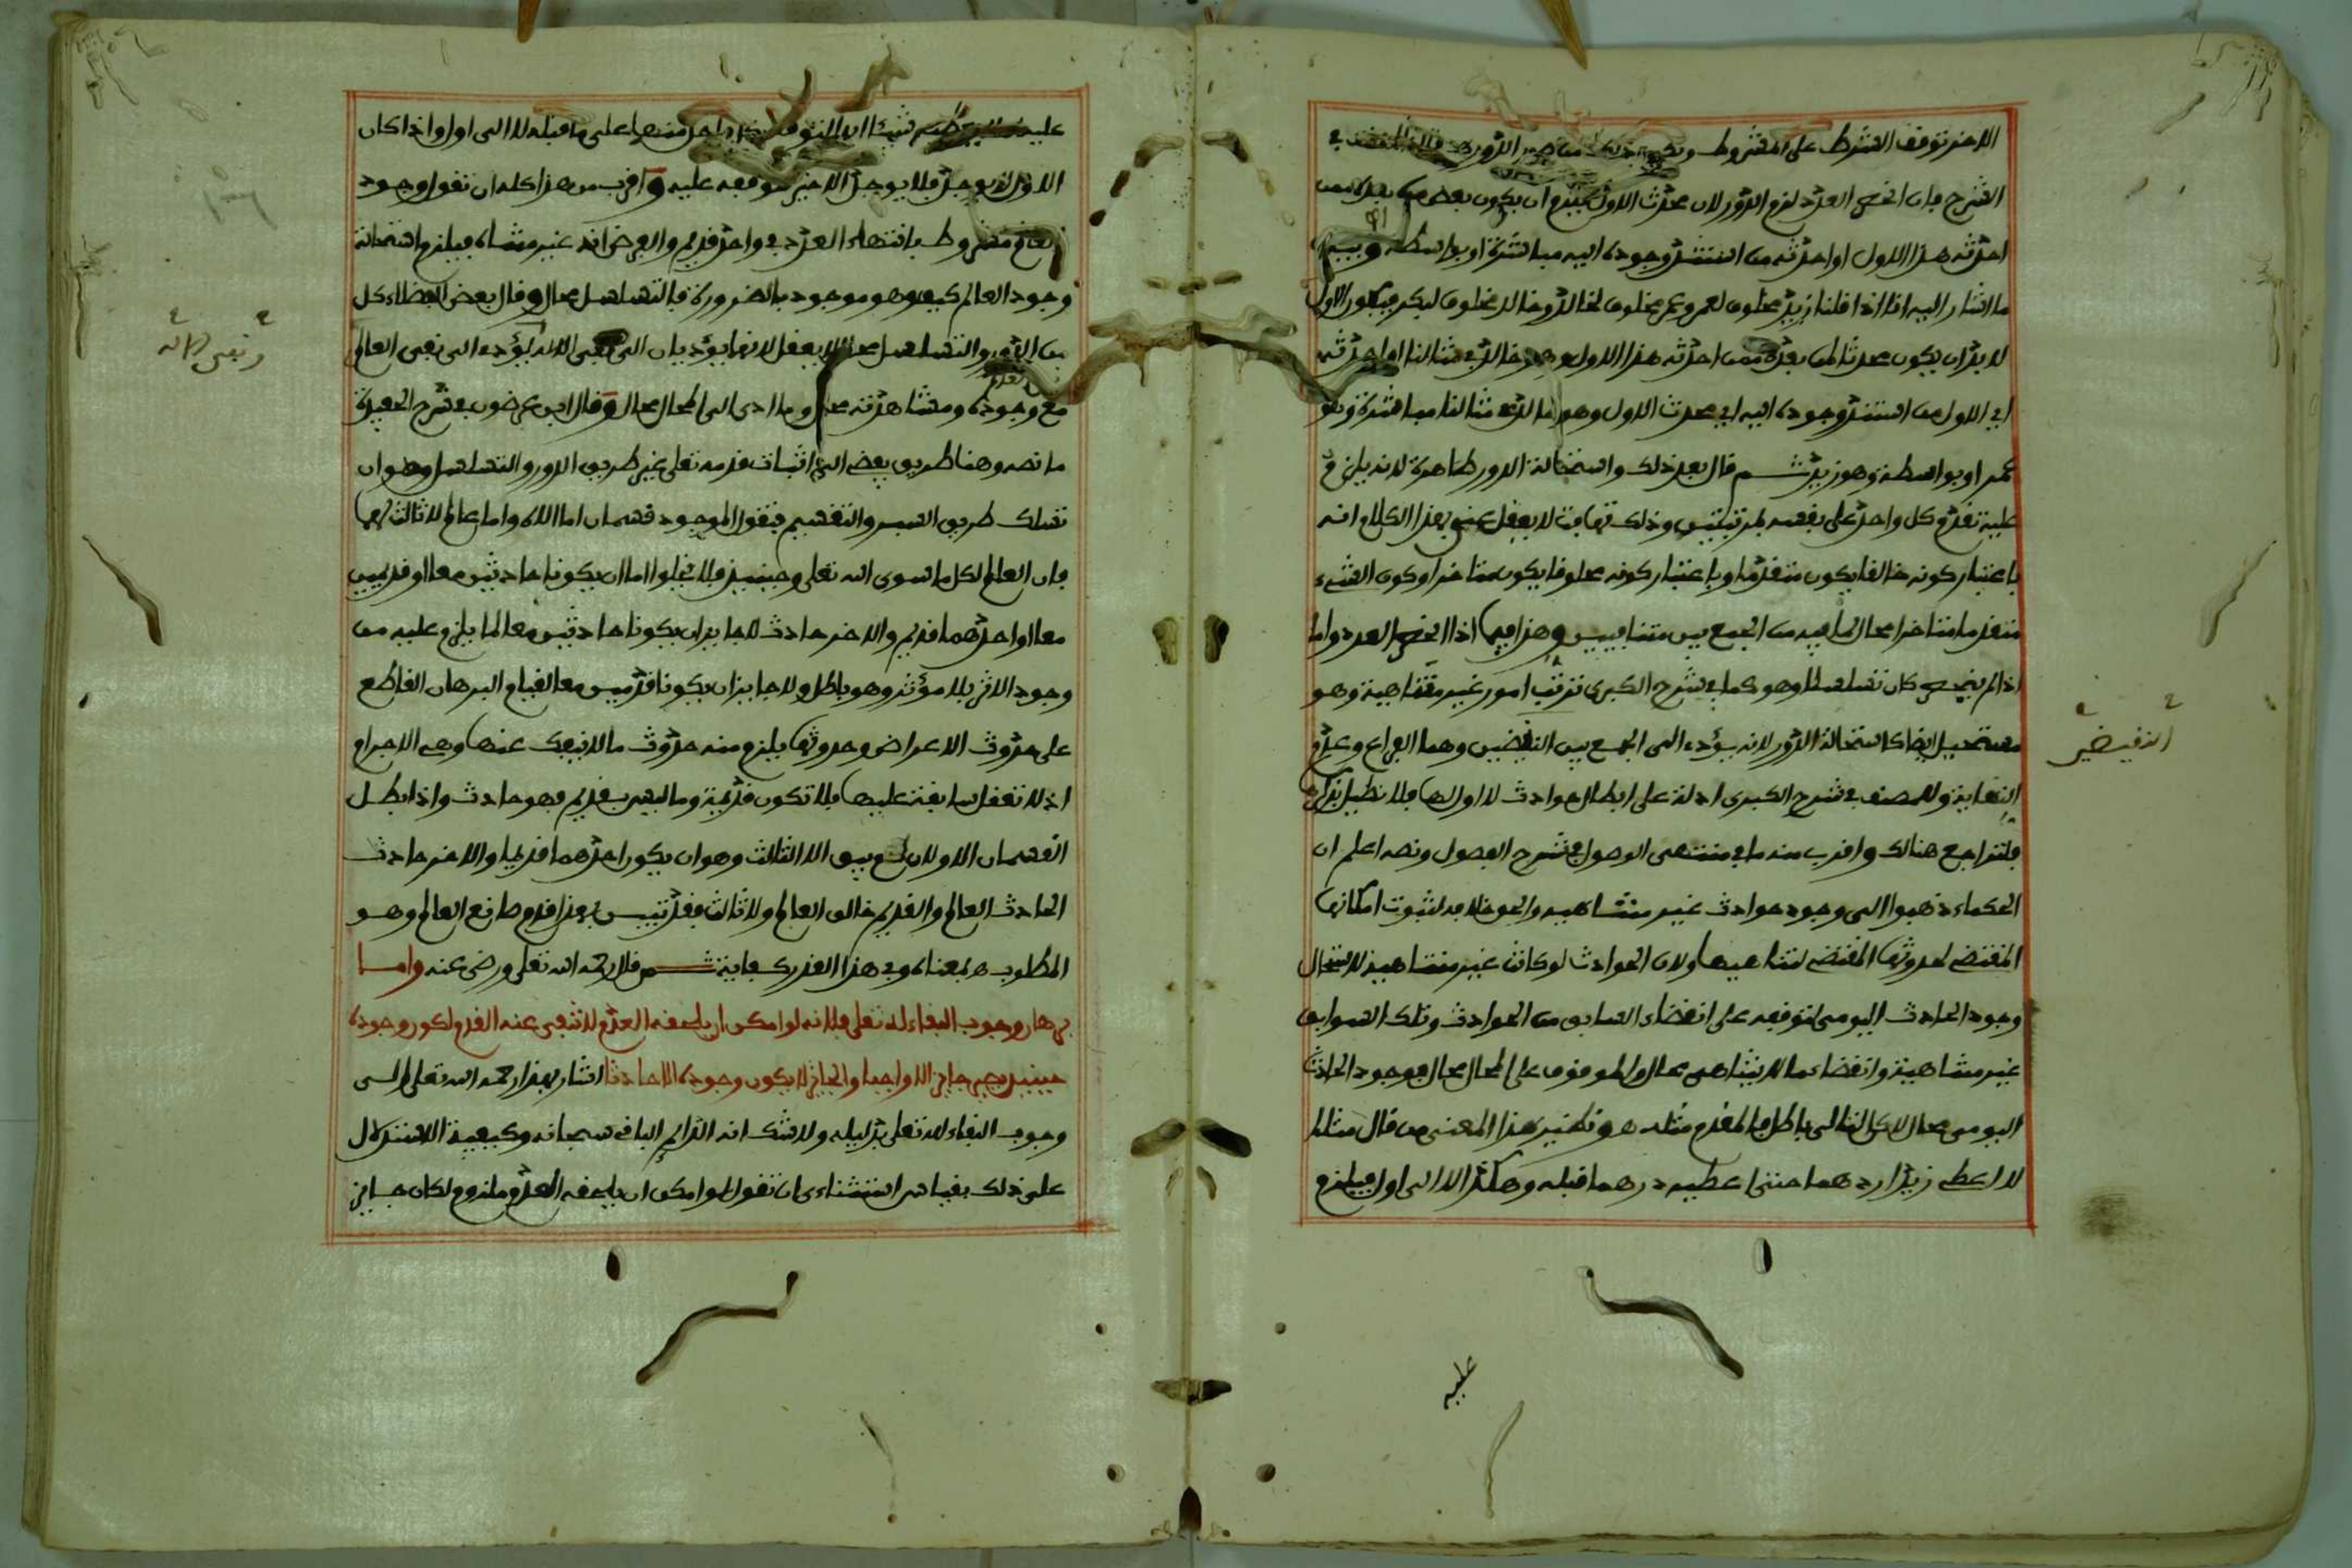 الاخر توقف الشرط على المشروط
الشرح فان انحصر العدد لزم الدور لان محدث الاول يلزم ان يكون بعض من بعده ممن
احدثه هذا الاول او احدثه من استند وجوده اليه مباشرة او بواسطة وبيان
ما اشار اليه انا اذا قلنا زيد مخلوق لعمرو وعمر مخلوق لخالد وخالد مخلوق لبكر فيكون الاول
لا بد ان يكون محدثا لمن بعده ممن احدثه هذا الاول وهو خالد في مثالنا او احدثه
اي الاول من استند وجوده اليه اي محدث الاول وهو خالد في مثالنا مباشرة وهو
عمر او بواسطة وهو زيد ثم قال بعد ذلك واستحالة الدور ظاهرة لانه يلزم
عليه تقدم كل واحد على نفسه بمرتبتين وذلك تهافت لا يعقل يعني بهذا الكلام انه
باعتبار كونه خالقا يكون متقدما وباعتبار كونه مخلوقا يكون متاخرا وكون الشيء
متقدما متاخرا محال لما فيه من الجمع بين متنافيين وهذا فيما اذا انحصر العدد واما
اذا لم ينحصر كان تسلسلا وهو كما في شرح الكبرى ترتب امور غير متناهية وهو
مستحيل ايضا كاستحالة الدور لانه يؤدي الى الجمع بين النقيضين وهما الفراغ وعدم
النهاية وللمصنف في شرح الكبرى ادلة على ابطال حوادث لا اول لها فلا نطيل بذكرها
فلتراجع هنالك واقرب منه ما في منتهى الوصول في شرح الفصول ونصه اعلم ان
الحكماء ذهبوا الى وجود حوادث غير متناهية والحق خلافه لثبوت امكانها
المقتضي لحدوثها المقتضي لتناهيها ولان الحوادث لو كانت غير متناهية لاستحال
وجود الحادث اليومي لتوقفه على انقضاء السابق من الحوادث وتلك السوابق
غير متناهية وانقضاء ما لا يتناهى محال والموقوف على المحال محال فوجود الحادث
اليومي محال لاكن التالي باطل فالمقدم مثله هو تكثير هذا المعنى من قال مثلا
لا اعطي زيدا درهما حتى اعطيه درهما قبله وهكذا لا الى اول فيلزم
النقيضين
عليه
عليه شيئا ابدا لتوقف كل واحد منها على ما قبله لا الى اول واذا كان
الاول لا يوجد فلا يوجد الاخير لتوقفه عليه واقرب من هذا كله ان تقول وجود
العالم مشروط بانتهاء العدد في واحد قديم والفرض انه غير متناه فيلزم استحالة
وجود العالم كيف وهو موجود بالضرورة فالتسلسل محال وقال بعض الفضلاء كل
من الدور والتسلسل محال لا يعقل لانهما يؤديان الى نفي الاله يؤدي الى نفي العالم
مع وجوده ومشاهدته محال وما ادى الى المحال محال وقال ابن عرضون في شرح العقيدة
ما نصه وهنا طريق يفضي الى اثبات قدمه تعلى بغير طريق الدور والتسلسل وهو ان
تسلك طريق السبر والتقسيم فتقول الموجود قسمان اما الاله واما عالم لا ثالث لهما
فان العالم لكل ما سوى الله تعلى وحينئذ فلا يخلوا اما ان يكونا حادثين معا او قديمين
معا او احدهما قديم والاخر حادث لا جايز ان يكونا حادثين معا لما يلزم عليه من
وجود الاثر بلا مؤثر وهو باطل ولا جايز ان يكونا قديمين معا لقيام البرهان القاطع
على حدوث الاعراض وحدوثها يلزم منه حدوث ما لا ينفك عنها وهي الاجرام
اذ لا تعقل سابقة عليها فلا تكون قديمة وما ليس بقديم فهو حادث واذا بطل
القسمان الاولان لم يبق الا الثالث وهو ان يكون احدهما قديما والاخر حادث
الحادث العالم والقديم خالق العالم ولا ثالث فقد تبين بهذا قدم صانع العالم وهو
المطلوب ه بمعناه وفي هذا القدر كفاية ثم قال رحمه الله تعلى ورضي عنه واما
برهان وجوب البقاء له تعلى فلانه لو امكن ان يلحقه العدم لانتفى عنه القدم لكون وجوده
حينئذ يصير جايزا لا واجبا والجايز لا يكون وجوده الا حادثا اشار بهذا رحمه الله تعلى الى
وجوب البقاء لله تعلى بدليله ولا شك انه الدايم الباقي سبحانه وكيفية الاستدلال
على ذلك بقياس استثناءي ان تقول لو امكن ان يلحقه العدم ملزوم لكان جايز
ونفي الاله